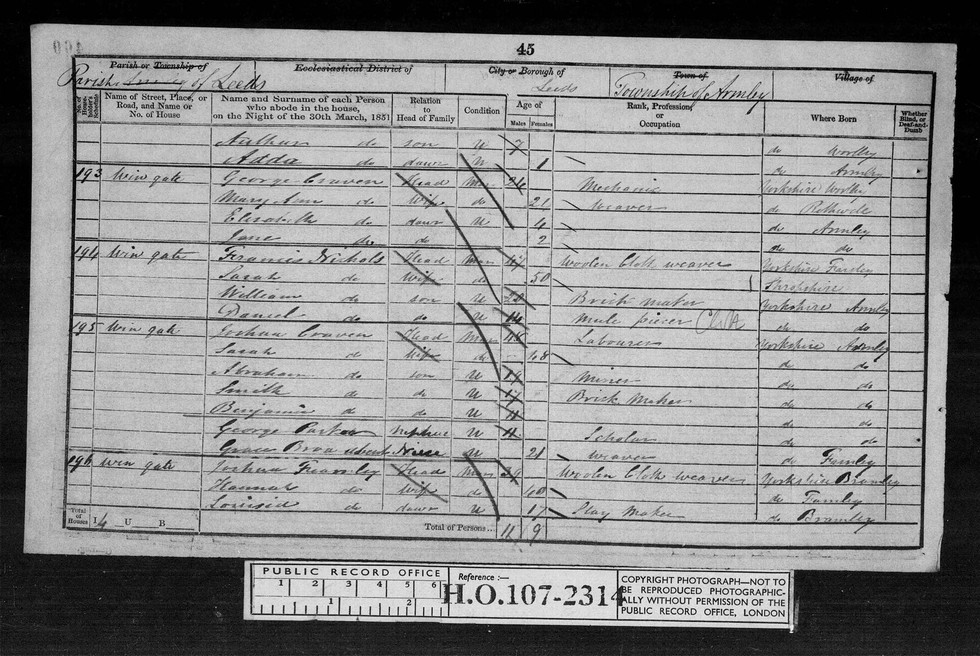 45
Parish or Township of Ecclesiastical District of City or Borough of Town of Village of
Parish of Leeds Leeds Township of Armley
No. of House-holder's Schedule Name of Street, Place, or Road, and Name or No. of House Name and Surname of each Person who abode in the house, on the Night of the 30th March, 1851 Relation to Head of Family Condition Age of Males Females Rank, Profession, or Occupation Where Born Whether Blind, or Deaf-and-Dumb
Nathan do son U 7 do Wortley
Adda do daur U 1 do Armley
193 Win gate George Craven Head Mar 26 Mechanic Yorkshire Wortley
Mary Ann do Wife do 21 Weaver do Rothwell
Elizabeth do daur U 4 do Armley
Jane do do 2 do do
194 Win gate Francis Nichols Head Mar Woolen Cloth weaver Yorkshire Farsley
Sarah do Wife do 50 Shropshire
William do son U Brick maker Yorkshire Armley
Daniel do do U 14 Mule piecer Cloth do do
195 Win gate Joshua Craven Head Mar Labourer Yorkshire Armley
Sarah do Wife do do do
Abraham do son U 19 Miner do do
Smith do do U 17 Brick Maker do do
Benjamin do do U 11 do do
George Parker nephew U 11 Scholar do do
Grace Broadbent Niece U 21 weaver do Farnley
196 Win gate Joshua Head Mar 39 Woolen Cloth weaver Yorkshire Bramley
Hannah do Wife do 40 do Farnley
Louisa do daur U 17 Stay Maker do Bramley
Total of Houses I 4 U B Total of Persons... 11 9
PUBLIC RECORD OFFICE
1 2 3 4 5 6
1 2
Reference :—
H.O.107-2314
COPYRIGHT PHOTOGRAPH—NOT TO BE REPRODUCED PHOTOGRAPHIC-ALLY WITHOUT PERMISSION OF THE PUBLIC RECORD OFFICE, LONDON